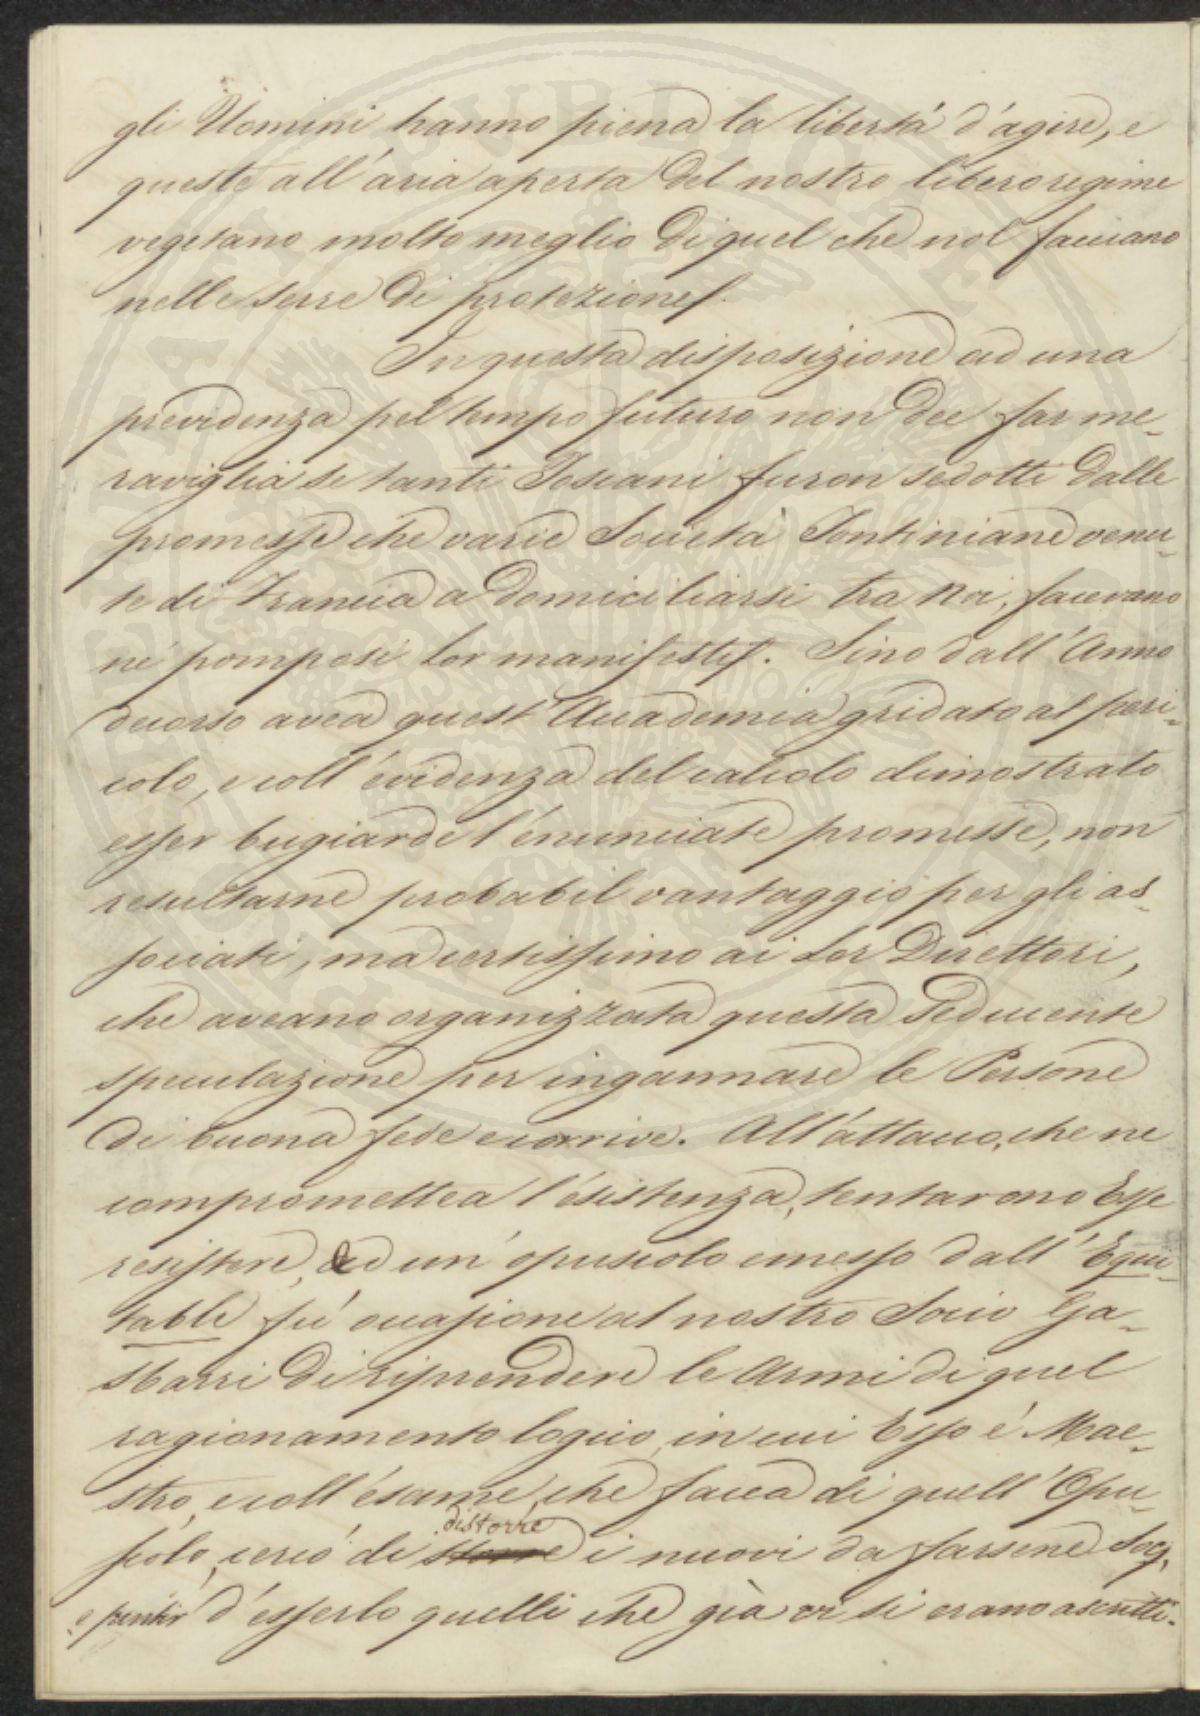 gli Uomini hanno piena la libertà d'agire, e
queste all'aria aperta del nostro libero regime
vegetano molto meglio di quel che nol facciano
nelle serre di protezione.
In questa disposizione ad una
previdenza pel tempo futuro non dee far me-
raviglia se tanti Toscani furon sedotti dalle
promesse che varie Società Tontiniane venu-
te di Francia a domiciliarsi tra noi, facevano
ne' pomposi lor manifesti. Sino dall'Anno
decorso avea quest'Accademia gridato al peri-
colo, e coll'evidenza del calcolo dimostrato
esser bugiarde l'enunciate promesse, non
resultarne probabil vantaggio per gli as-
sociati, ma certissimo ai lor Direttori,
che aveano organizzata questa seducente
speculazione per ingannare le Persone
di buona fede e corrive. All'attacco, che ne
compromettea l'esistenza, tentarono Esse
resistere, ed un'opuscolo emesso dall'Equi-
table fu' occasione al nostro Socio Ga-
sbarri di riprendere le Armi di quel
ragionamento logico, in cui Esso è Mae-
stro, e coll'esame, che facea di quell'Opu-
scolo, cercò di distorre i nuovi da farsene Socj,
e pentir d'esserlo quelli che già vi si erano ascritti.
PVBLIC